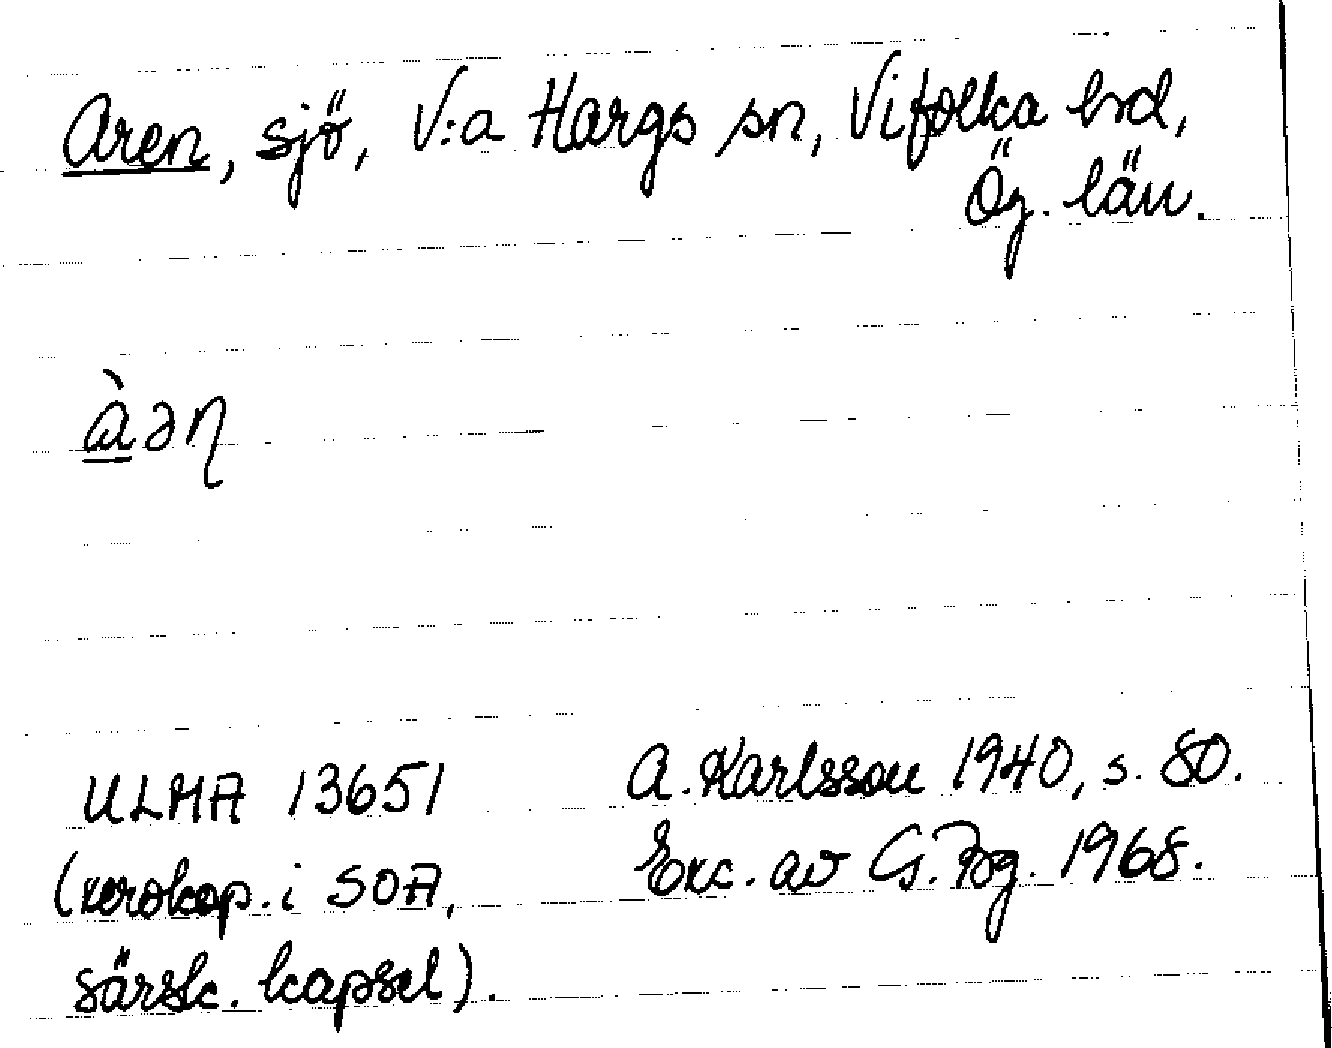 Aren, sjö, V:a Hargs sn, Vifolka hrd,
Ög. län.
àəŋ
ULMA 13651
(xerokop. i SOA,
särsk. kapsel).
A. Karlsson 1940, s. 80.
Exc. av G. Bg. 1968.